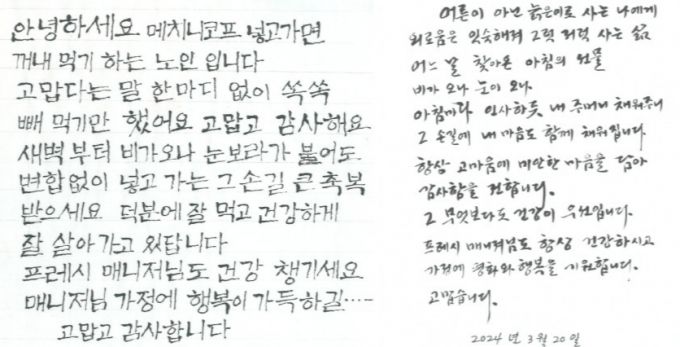 안녕하세요 메치니코프 넣고가면
꺼내 먹기 하는 노인 입니다
고맙다는 말 한마디 없이 쏙쏙
빼 먹기만 했어요 고맙고 감사해요
새벽 부터 비가오나 눈보라가 불어도
변합없이 넣고 가는 그 손길 큰 축복
받으세요 덕분에 잘 먹고 건강하게
잘 살아가고 있답니다
프레시 매니저님도 건강 챙기세요
매니저님 가정에 행복이 가득하길……
고맙고 감사합니다
어른이 아닌 늙은이로 사는 나에게
외로움은 익숙해져 그럭저럭 사는 삶
어느 날 찾아온 아침의 선물
비가 오나 눈이 오나
아침마다 인사하듯 내 주머니 채워주니
그 손길에 내 마음도 함께 채워집니다.
항상 고마움에 미안한 마음을 담아
감사함을 전합니다.
그 무엇보다도 건강이 우선입니다.
프레시 매니저님도 항상 건강하시고
가정에 평화와 행복을 기원합니다.
고맙습니다.
2024 년 3월 20일